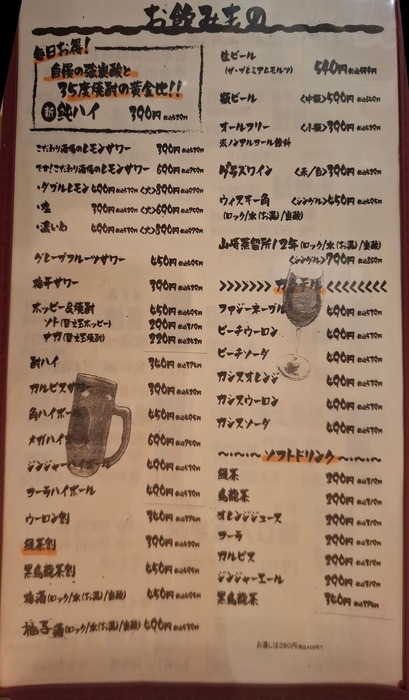 お飲みもの
毎日お得!
自慢の強炭酸と
35度焼酎の黄金比!!
新 純ハイ 390円 税込430円
こだわり酒場のレモンサワー 390円 税込430円
でか!こだわり酒場のレモンサワー 690円 税込760円
・ダブルレモン 490円 税込540円 <大>890円 税込980円
・塩 390円 税込430円 <大>690円 税込760円
・濃いめ 490円 <大>890円
グレープフルーツサワー 450円
梅干サワー 390円
ホッピー&焼酎 450円
ソト 290円
ナカ 220円
酎ハイ 340円 税込374円
カルピスサワー 390円
角ハイボール 450円
メガハイボール 690円
ジンジャーハイボール 490円
コーラハイボール 490円
ウーロン割 340円 税込374円
緑茶割 390円
黒烏龍茶割 450円
梅酒(ロック/水/お湯/炭酸) 450円
柚子酒(ロック/水/お湯/炭酸) 490円
生ビール
(ザ・プレミアムモルツ) 540円
瓶ビール <中瓶>590円
オールフリー <小瓶>390円
※ノンアルコール飲料
グラスワイン <赤/白>390円
ウィスキー角 <シングル>450円
(ロック/水/お湯/炭酸)
山崎蒸留所12年(ロック/水/お湯/炭酸)
<シングル>790円
カクテル
ファジーネーブル 490円
ピーチウーロン 490円
ピーチソーダ 490円
カシスオレンジ 490円
カシスウーロン 490円
カシスソーダ 490円
ソフトドリンク
緑茶 290円
烏龍茶 290円
オレンジジュース 290円
コーラ 290円
カルピス 290円
ジンジャーエール 290円
黒烏龍茶 340円 税込374円
お通しは380円